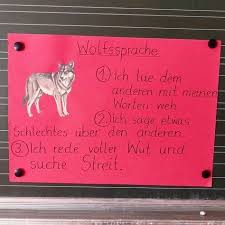 Wolfssprache
① Ich tue dem
anderen mit meinen
Worten weh.
② Ich sage etwas
Schlechtes über den anderen.
③ Ich rede voller Wut und
suche Streit.